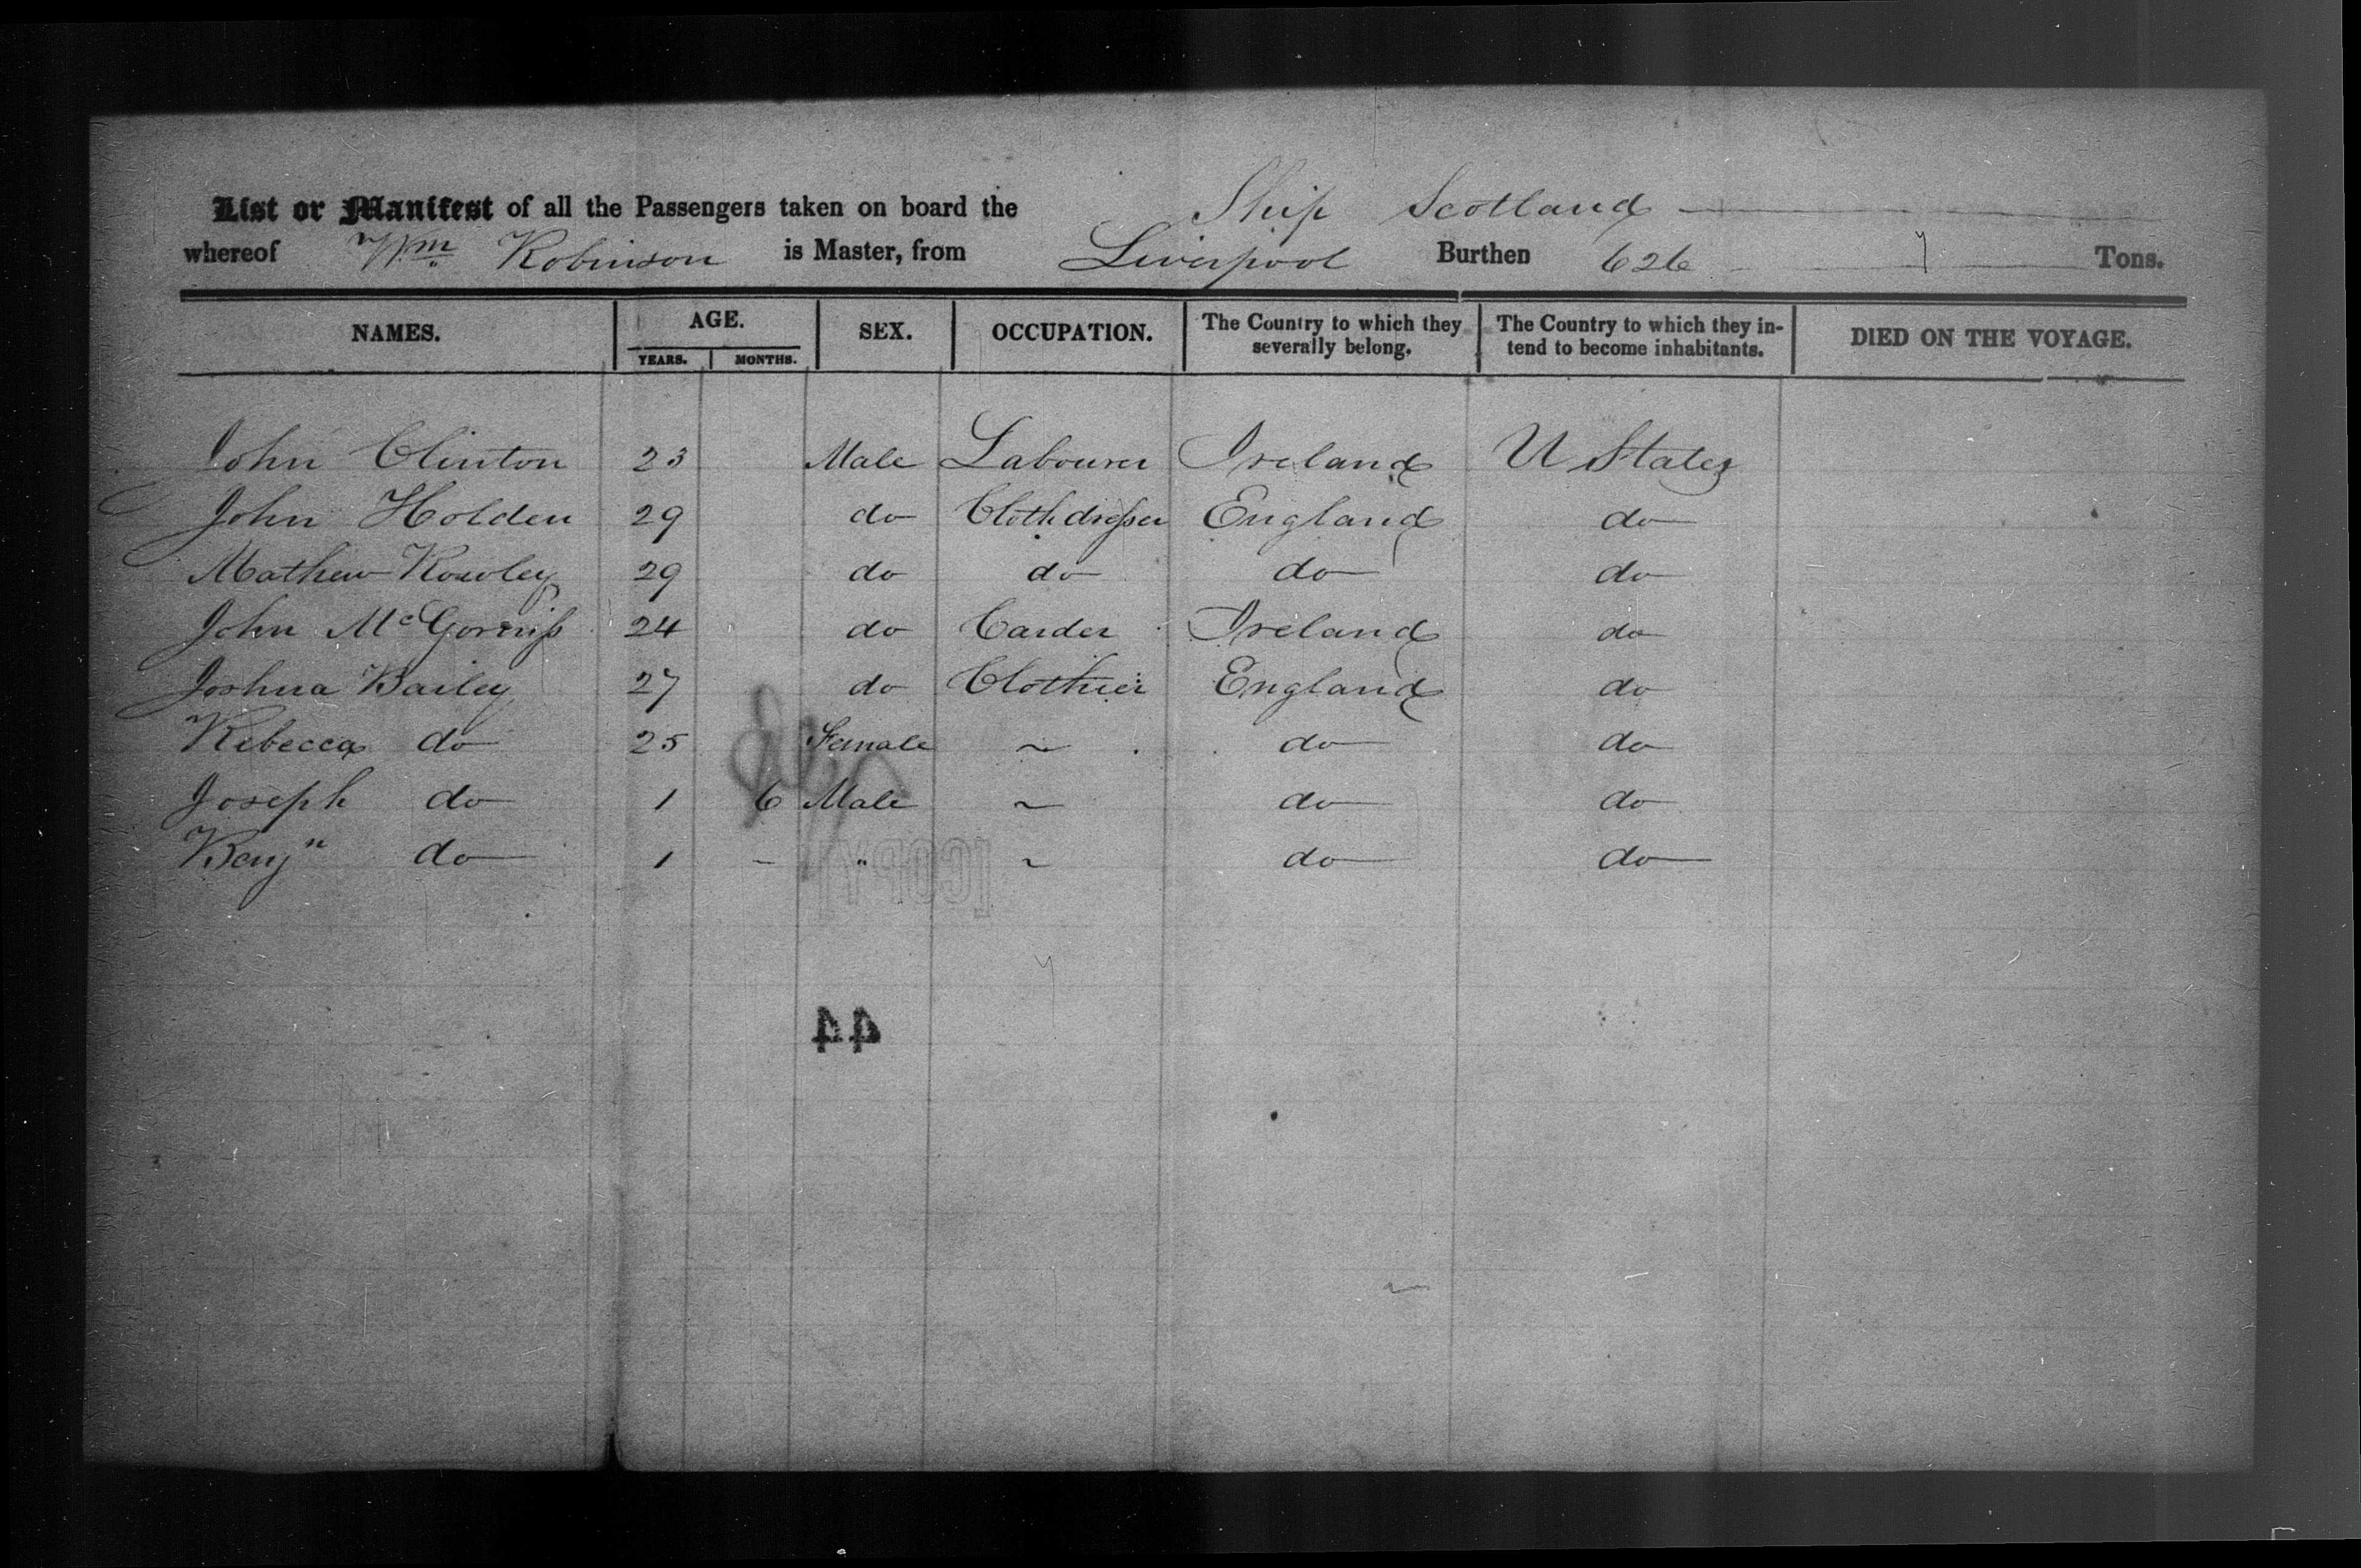 List or Manifest of all the Passengers taken on board the Ship Scotland
whereof Wm Robinson is Master, from Liverpool Burthen 626 Tons.
NAMES. AGE. SEX. OCCUPATION. The Country to which they severally belong. The Country to which they in-tend to become inhabitants. DIED ON THE VOYAGE.
YEARS. MONTHS.
John Clinton 23 Male Labourer Ireland U States
John Holden 29 do Clothdresser England do
Mathew Rowley 29 do do do do
John 24 do Carder Ireland do
Joshua Bailey 27 do Clothier England do
Rebecca do 25 Female ~ do do
Joseph do 1 6 Male ~ do do
Benjn do 1 - " ~ do do
[COPY]
44